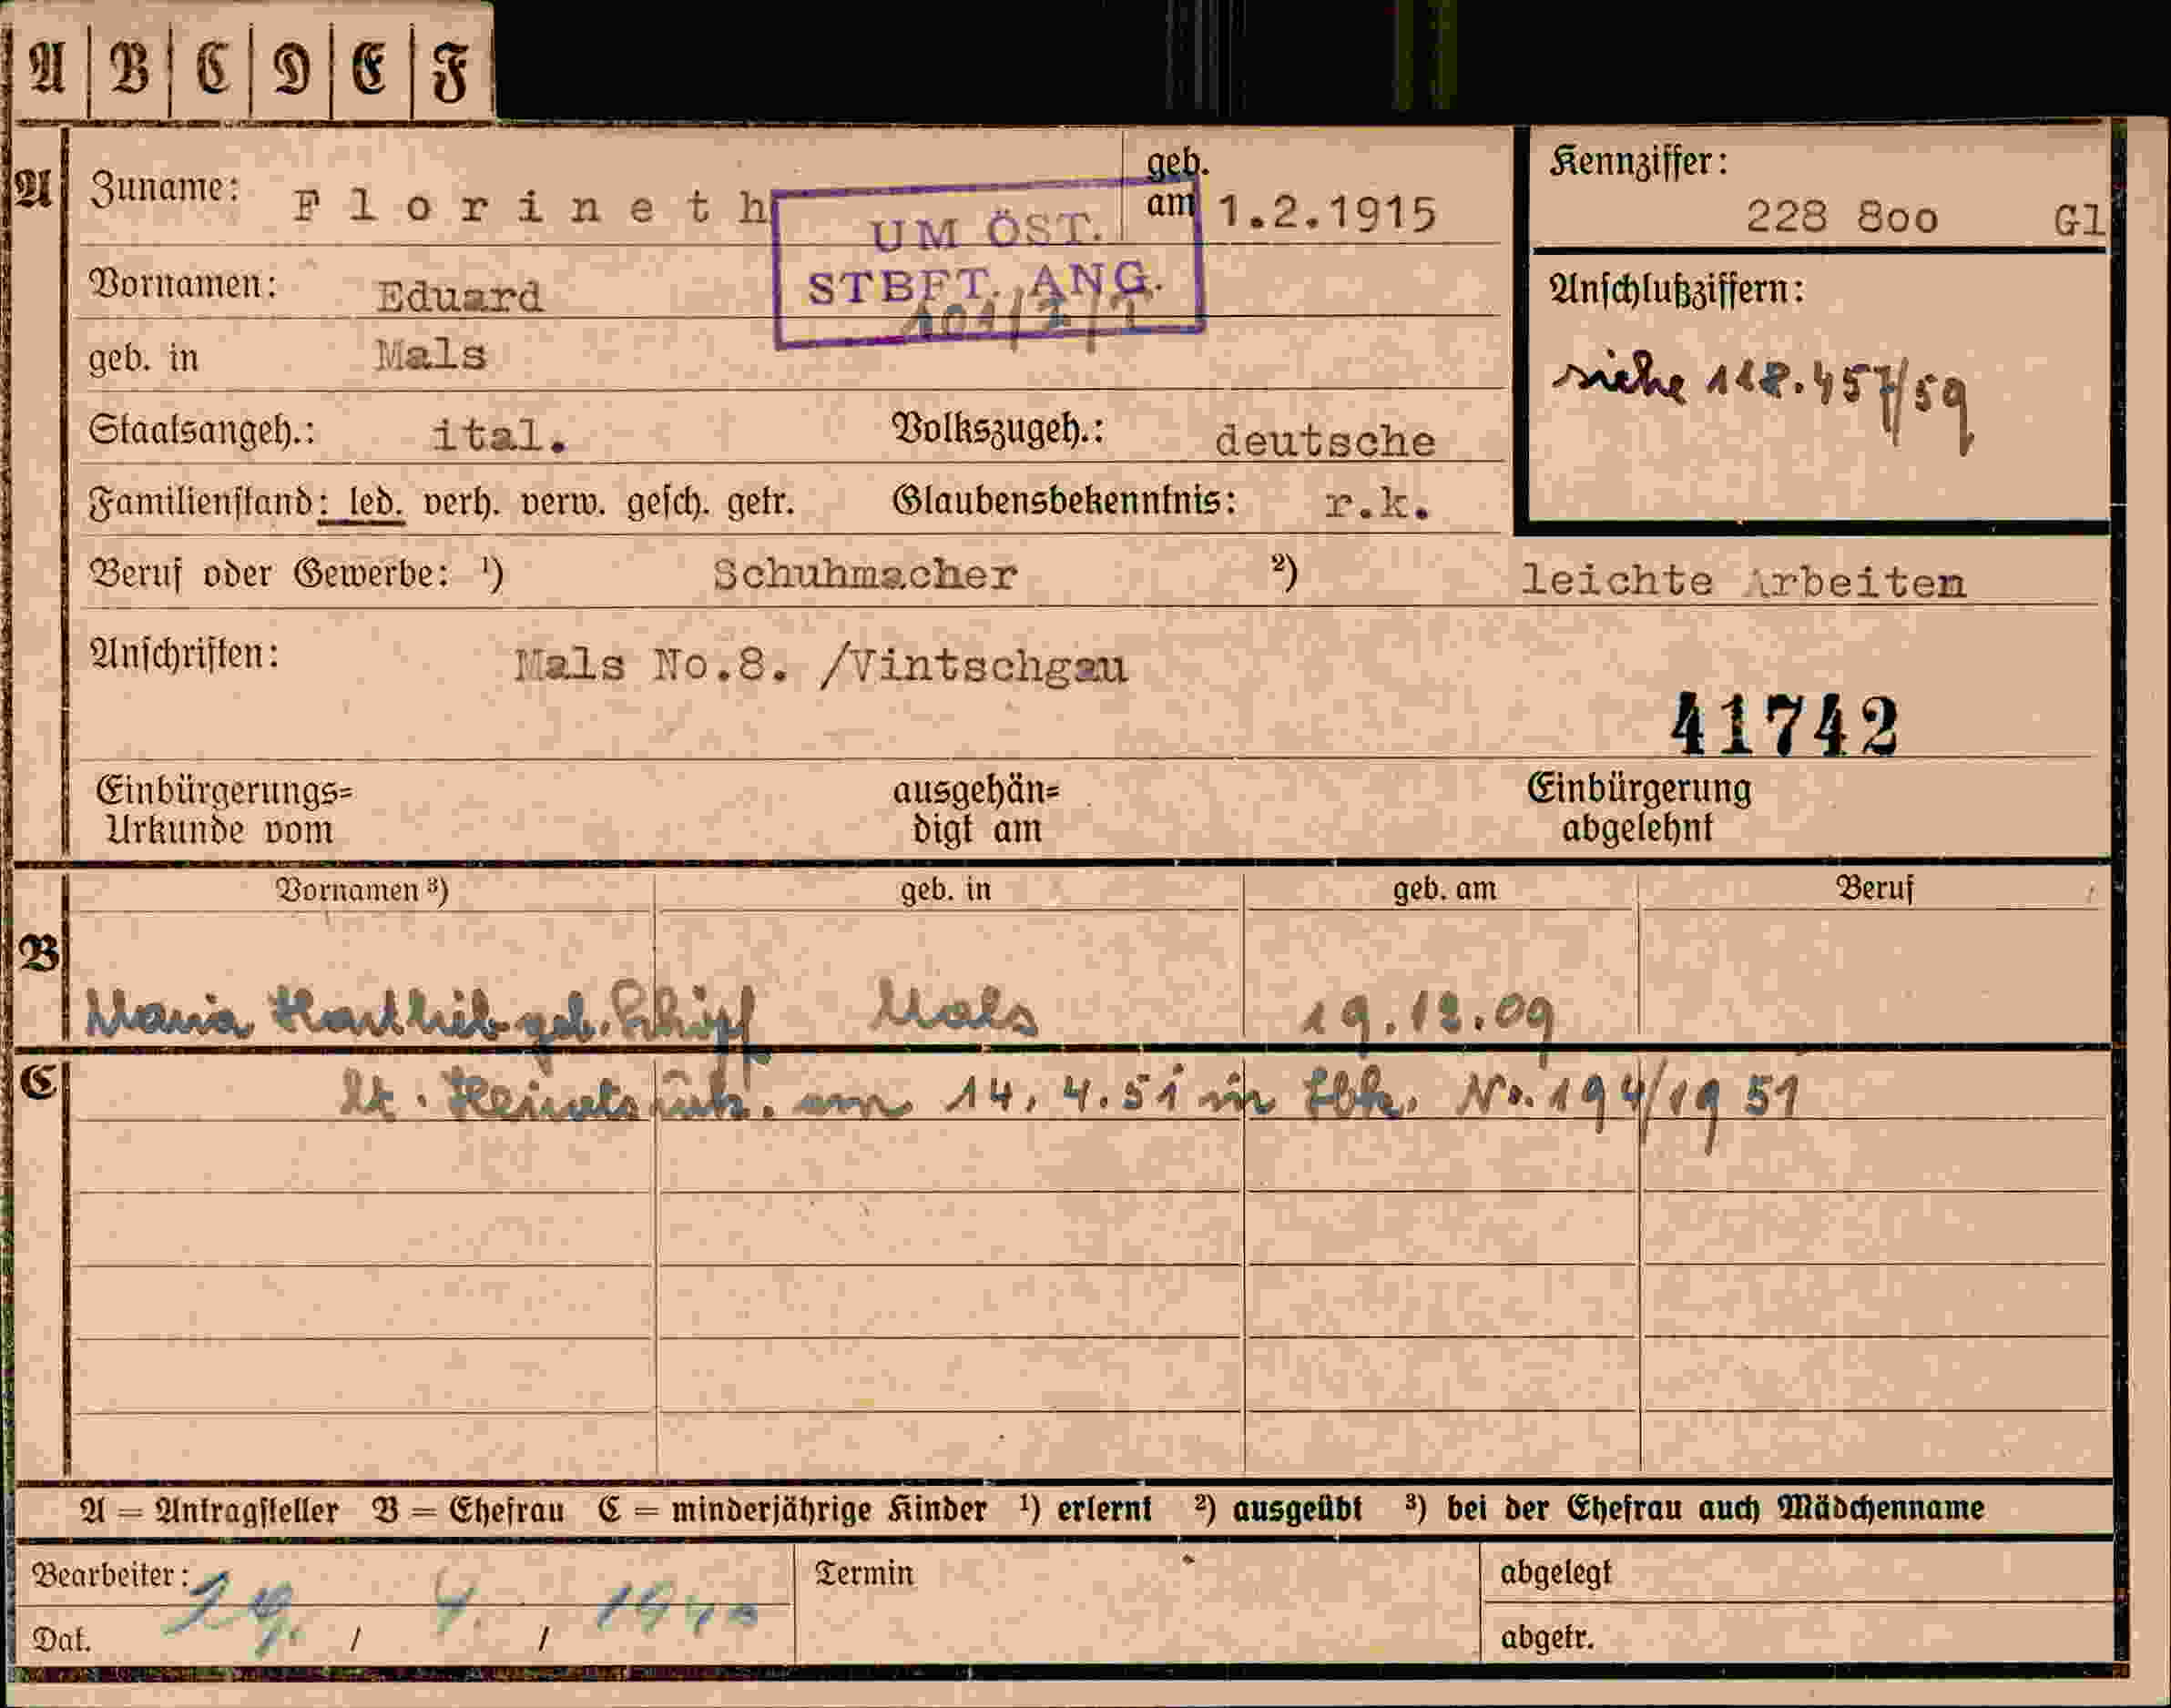 A B C D E F
A Zuname: Florineth geb. am 1.2.1915
Kennziffer: 228 800 Gl
UM ÖST. STBFT. ANG.
Vornamen: Eduard
Anschlußziffern:
siehe 118.457/59
geb. in Mals
Staatsangeh.: ital. Volkszugeh.: deutsche
Familienstand: led. verh. verw. gesch. getr. Glaubensbekenntnis: r.k.
Beruf oder Gewerbe: ¹) Schuhmacher ²) leichte Arbeiten
Anschriften: Mals No.8. /Vintschgau
41742
Einbürgerungs=Urkunde vom ausgehän=digt am Einbürgerung abgelehnt
Vornamen ³) geb. in geb. am Beruf
B Maria geb. Mals 19.12.09
C lt. Heiratsurk. vom 14.4.51 in Ibk. No. 194/1951
A = Antragsteller B = Ehefrau C = minderjährige Kinder ¹) erlernt ²) ausgeübt ³) bei der Ehefrau auch Mädchenname
Bearbeiter: Termin abgelegt
Dat. 29. / 4. / 1940 abgetr.